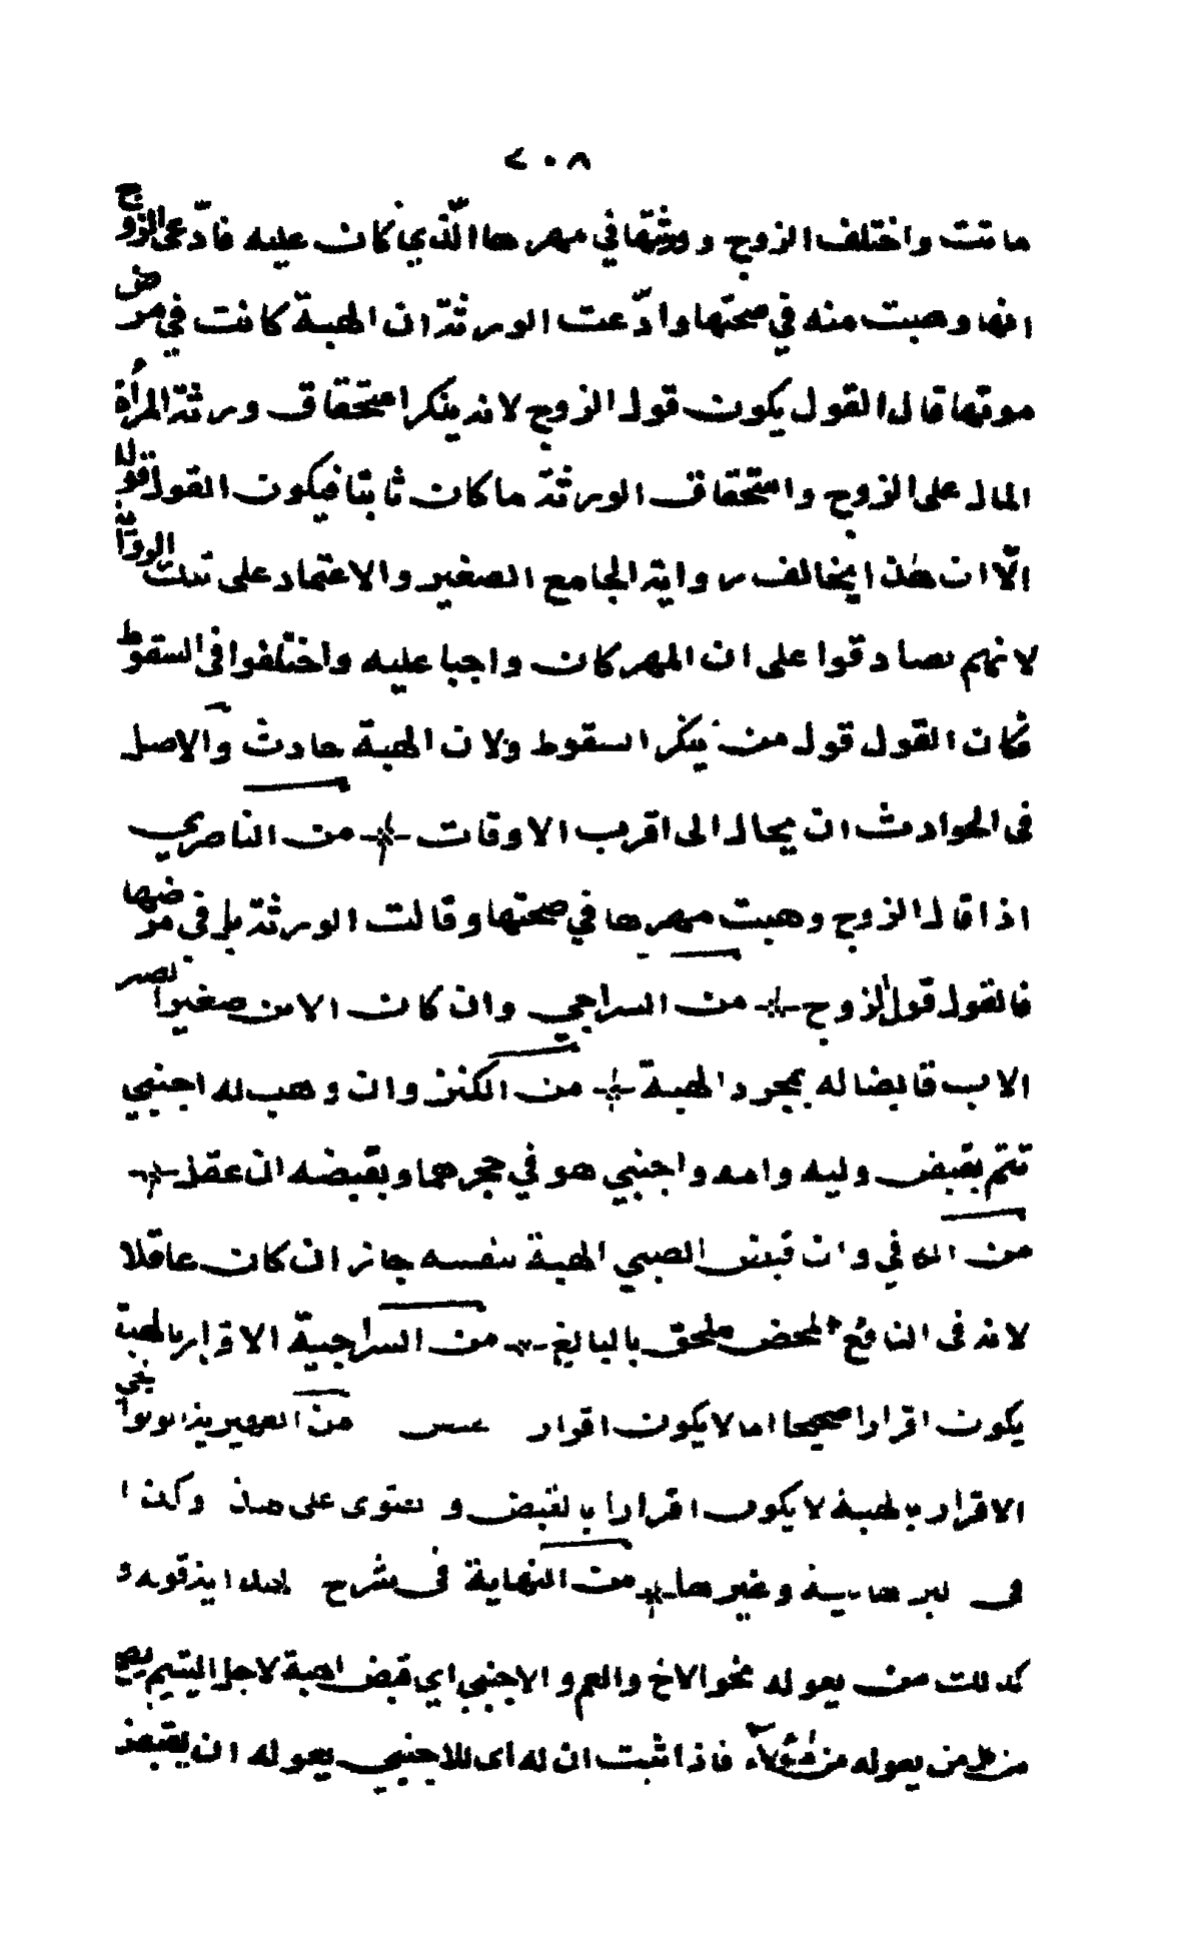 ٢٠٨
ماتت واختلف الزوج وورثتها في مهرها الّذي كان عليه فادّعى الزوج
انها وهبت منه في صحتها وادّعت الورثة ان الهبة كانت في مرض
موتها قال القول يكون قول الزوج لانه ينكر استحقاق ورثة المرأة
المال على الزوج واستحقاق الورثة ما كان ثابتا فيكون القول قوله
الّا ان هٰذا يخالف رواية الجامع الصغير والاعتماد على تلك الرواية
لانهم تصادقوا على ان المهر كان واجبا عليه واختلفوا فى السقوط
فكان القول قول من ينكر السقوط ولان الهبة حادث والاصل
فى الحوادث ان يحال الى اقرب الاوقات من الناصري
اذا قال الزوج وهبت مهرها في صحتها وقالت الورثة بل فى مرضها
فالقول قول الزوج من السراجي وان كان الابن صغيرا يصير
الاب قابضا له بمجرد الهبة من الكنز وان وهب له اجنبي
تتم بقبض وليه وامه واجنبي هو في حجرهما وبقبضه ان عقل
من الكافي وان قبض الصبي الهبة بنفسه جاز ان كان عاقلا
لانه فى النافع المحض ملحق بالبالغ من السراجية الاقرار بالهبة
يكون اقرارا صحيحا اما لا يكون اقرار من الظهيرية
الاقرار بالهبة لا يكون اقرارا بالقبض و الفتوى على هذا وكذا
فى وغيرها من النهاية فى شرح قوله و
كذلك من يعوله نحو الاخ والعم والاجنبي اي قبض الهبة لاجل اليتيم يصح
من كل من يعوله من هٰؤلآء فاذا ثبت ان له اى للاجنبي يعوله ان يقبض